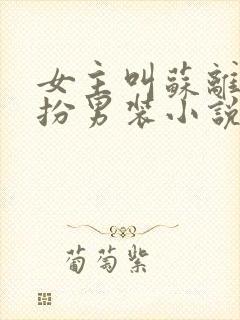 女主叫蘇離
扮男裝小說
葡萄紫